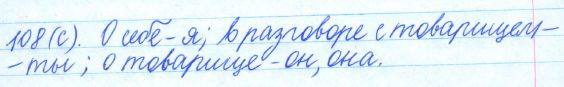 108(с). О себе - я; в разговоре с товарищем -
- ты; о товарище - он, она.